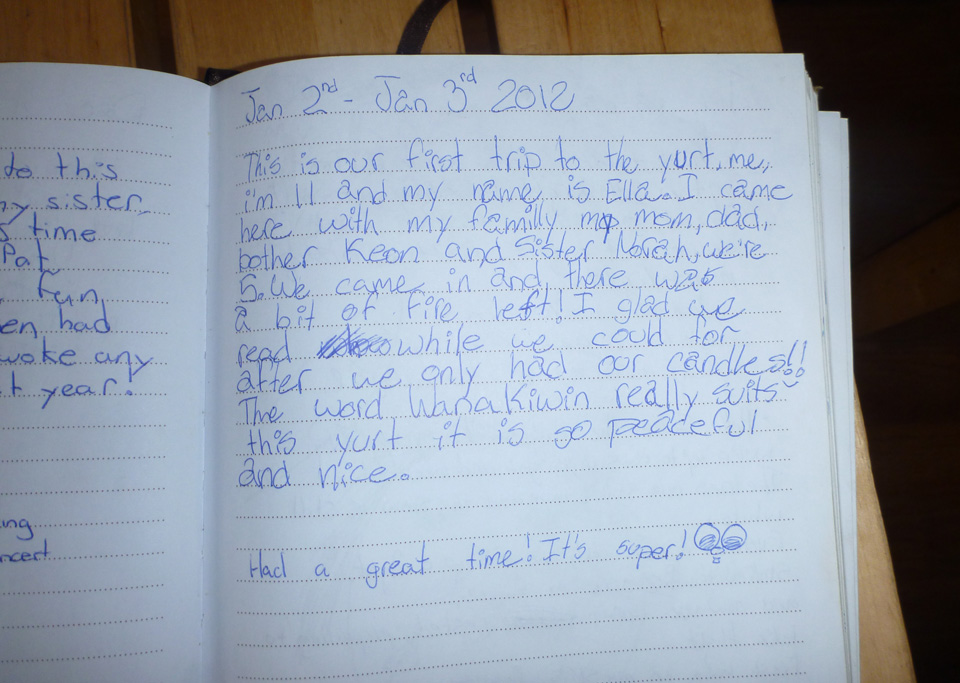 do this
my sister
time
Pat
fun,
en had
woke any
t year!
ing
ncert
Jan 2nd - Jan 3rd 2012
This is our first trip to the yurt, me,
i'm 11 and my name is Ella. I came
here with my familly my mom, dad,
bother Keon and Sister Norah, we're
5. We came in and there was
a bit of fire left! I glad we
read while we could for
after we only had our candles!!
The word Wanakiwin really suits
this yurt it is so peaceful
and nice.
Had a great time! It's super!